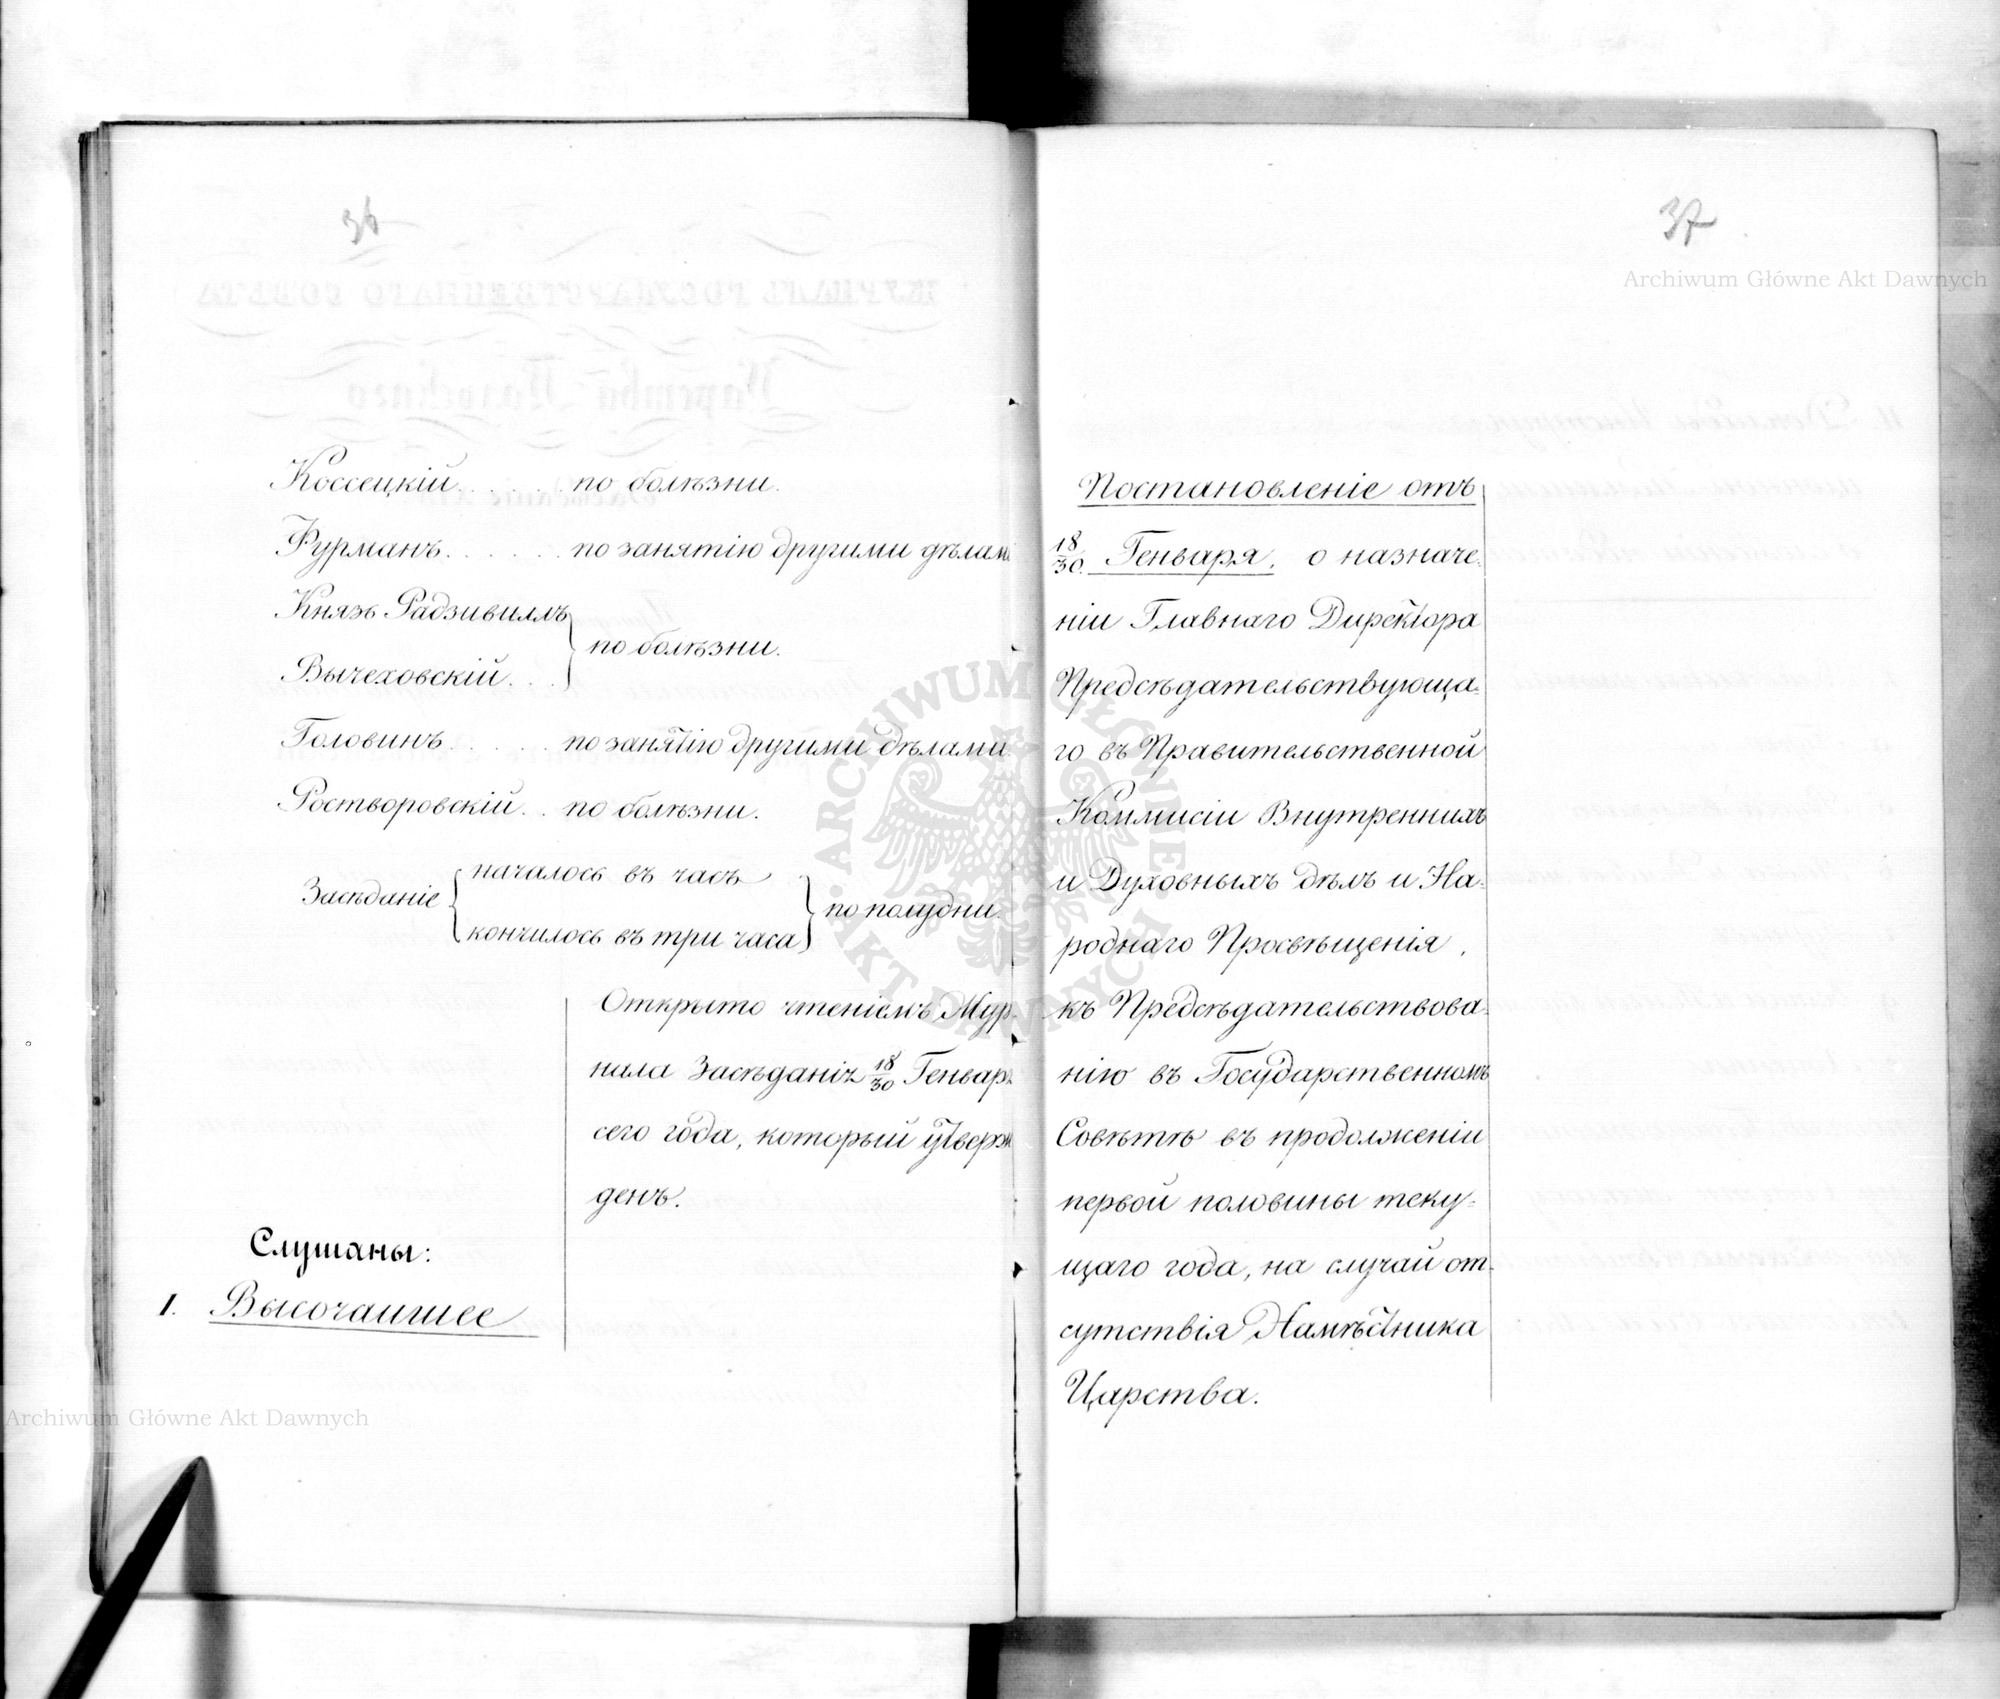 36
Коссецкій . . . . . . по болѣзни.
Фурманъ . . . . . . по занятію другими дѣлами
Князь Радзивиллъ
по болѣзни.
Вычеховскій . . .
Головинъ . . . . . по занятію другими дѣлами
Ростворовскій . . по болѣзни.
началось въ часъ
Засѣданіе по полудни.
кончилось въ три часа
Открыто чтеніемъ Жур-
нала Засѣданія 18/30 Генваря
сего года, который утверж
денъ.
Слушаны:
1. Высочайшее
37
Archiwum Główne Akt Dawnych
Постановленіе отъ
18/30. Генваря, о назначе-
ніи Главнаго Директора
Предсѣдательствующа-
го въ Правительственной
Коммисіи Внутреннихъ
и Духовныхъ дѣлъ и На-
роднаго Просвѣщенія,
къ Предсѣдательствова-
нію въ Государственномъ
Совѣтѣ въ продолженіи
первой половины теку-
щаго года, на случай от-
сутствія Намѣстника
Царства.
ARCHIWUM GŁÓWNE AKT DAWNYCH
Archiwum Główne Akt Dawnych